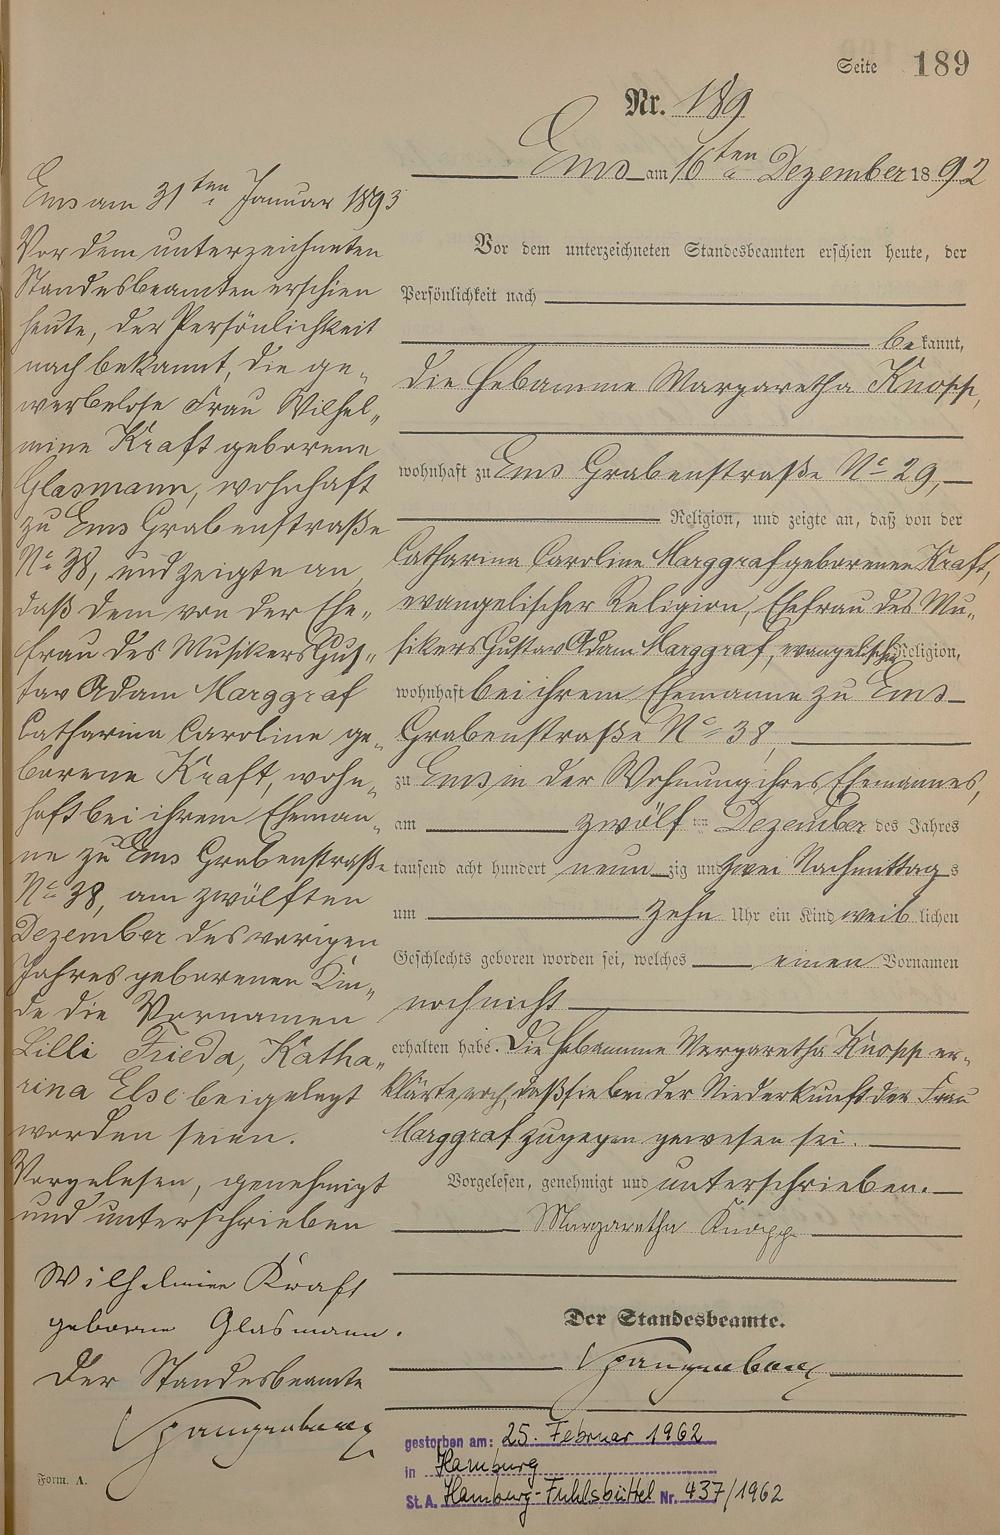 Seite 189
Nr. 189
Ems am 16ten Dezember 1892
Vor dem unterzeichneten Standesbeamten erschien heute, der
Persönlichkeit nach
bekannt,
die Hebamme Margaretha Knopp,
wohnhaft zu Ems Grabenstraße No 29,
Religion, und zeigte an, daß von der
Catharina Caroline Marggraf geborenen Kraft,
evangelischer Religion, Ehefrau des Mu„
sikers Gustav Adam Marggraf, evangelischer Religion,
wohnhaft bei ihrem Ehemanne zu Ems
Grabenstraße No 38
zu Ems in der Wohnung ihres Ehemannes,
am zwölf ten Dezember des Jahres
tausend acht hundert neun zig und zwei Nachmittags
um zehn Uhr ein Kind weiblichen
Geschlechts geboren worden sei, welches einen Vornamen
noch nicht
erhalten habe. Die Hebamme Margaretha Knopp er„
klärte noch, daß sie bei der Niederkunft der Frau
Marggraf zugegen gewesen sei.
Vorgelesen, genehmigt und unterschrieben.
Margaretha Knopp
Der Standesbeamte.
Spangenberg
Ems am 31ten Januar 1893
Vor dem unterzeichneten
Standesbeamten erschien
heute, der Persönlichkeit
nach bekannt, die ge„
werbelose Frau Wilhel„
mine Kraft geborene
Glasmann, wohnhaft
zu Ems Grabenstraße
No 38, und zeigte an,
daß dem von der Ehe„
frau des Musikers Gus„
tav Adam Marggraf
Catharina Caroline ge„
borene Kraft, wohn„
haft bei ihrem Eheman„
ne zu Ems Grabenstraße
No 38, am zwölften
Dezember des vorigen
Jahres geborenen Kin„
de die Vornamen
Lilli Frieda, Katha„
rina Else beigelegt
worden seien.
Vorgelesen, genehmigt
und unterschrieben
Wilhelmine Kraft
geborne Glasmann.
Der Standesbeamte
Spangenberg
gestorben am: 25. Februar 1962
in Hamburg
St.A. Hamburg-Fuhlsbüttel Nr. 437/1962
Form. A.